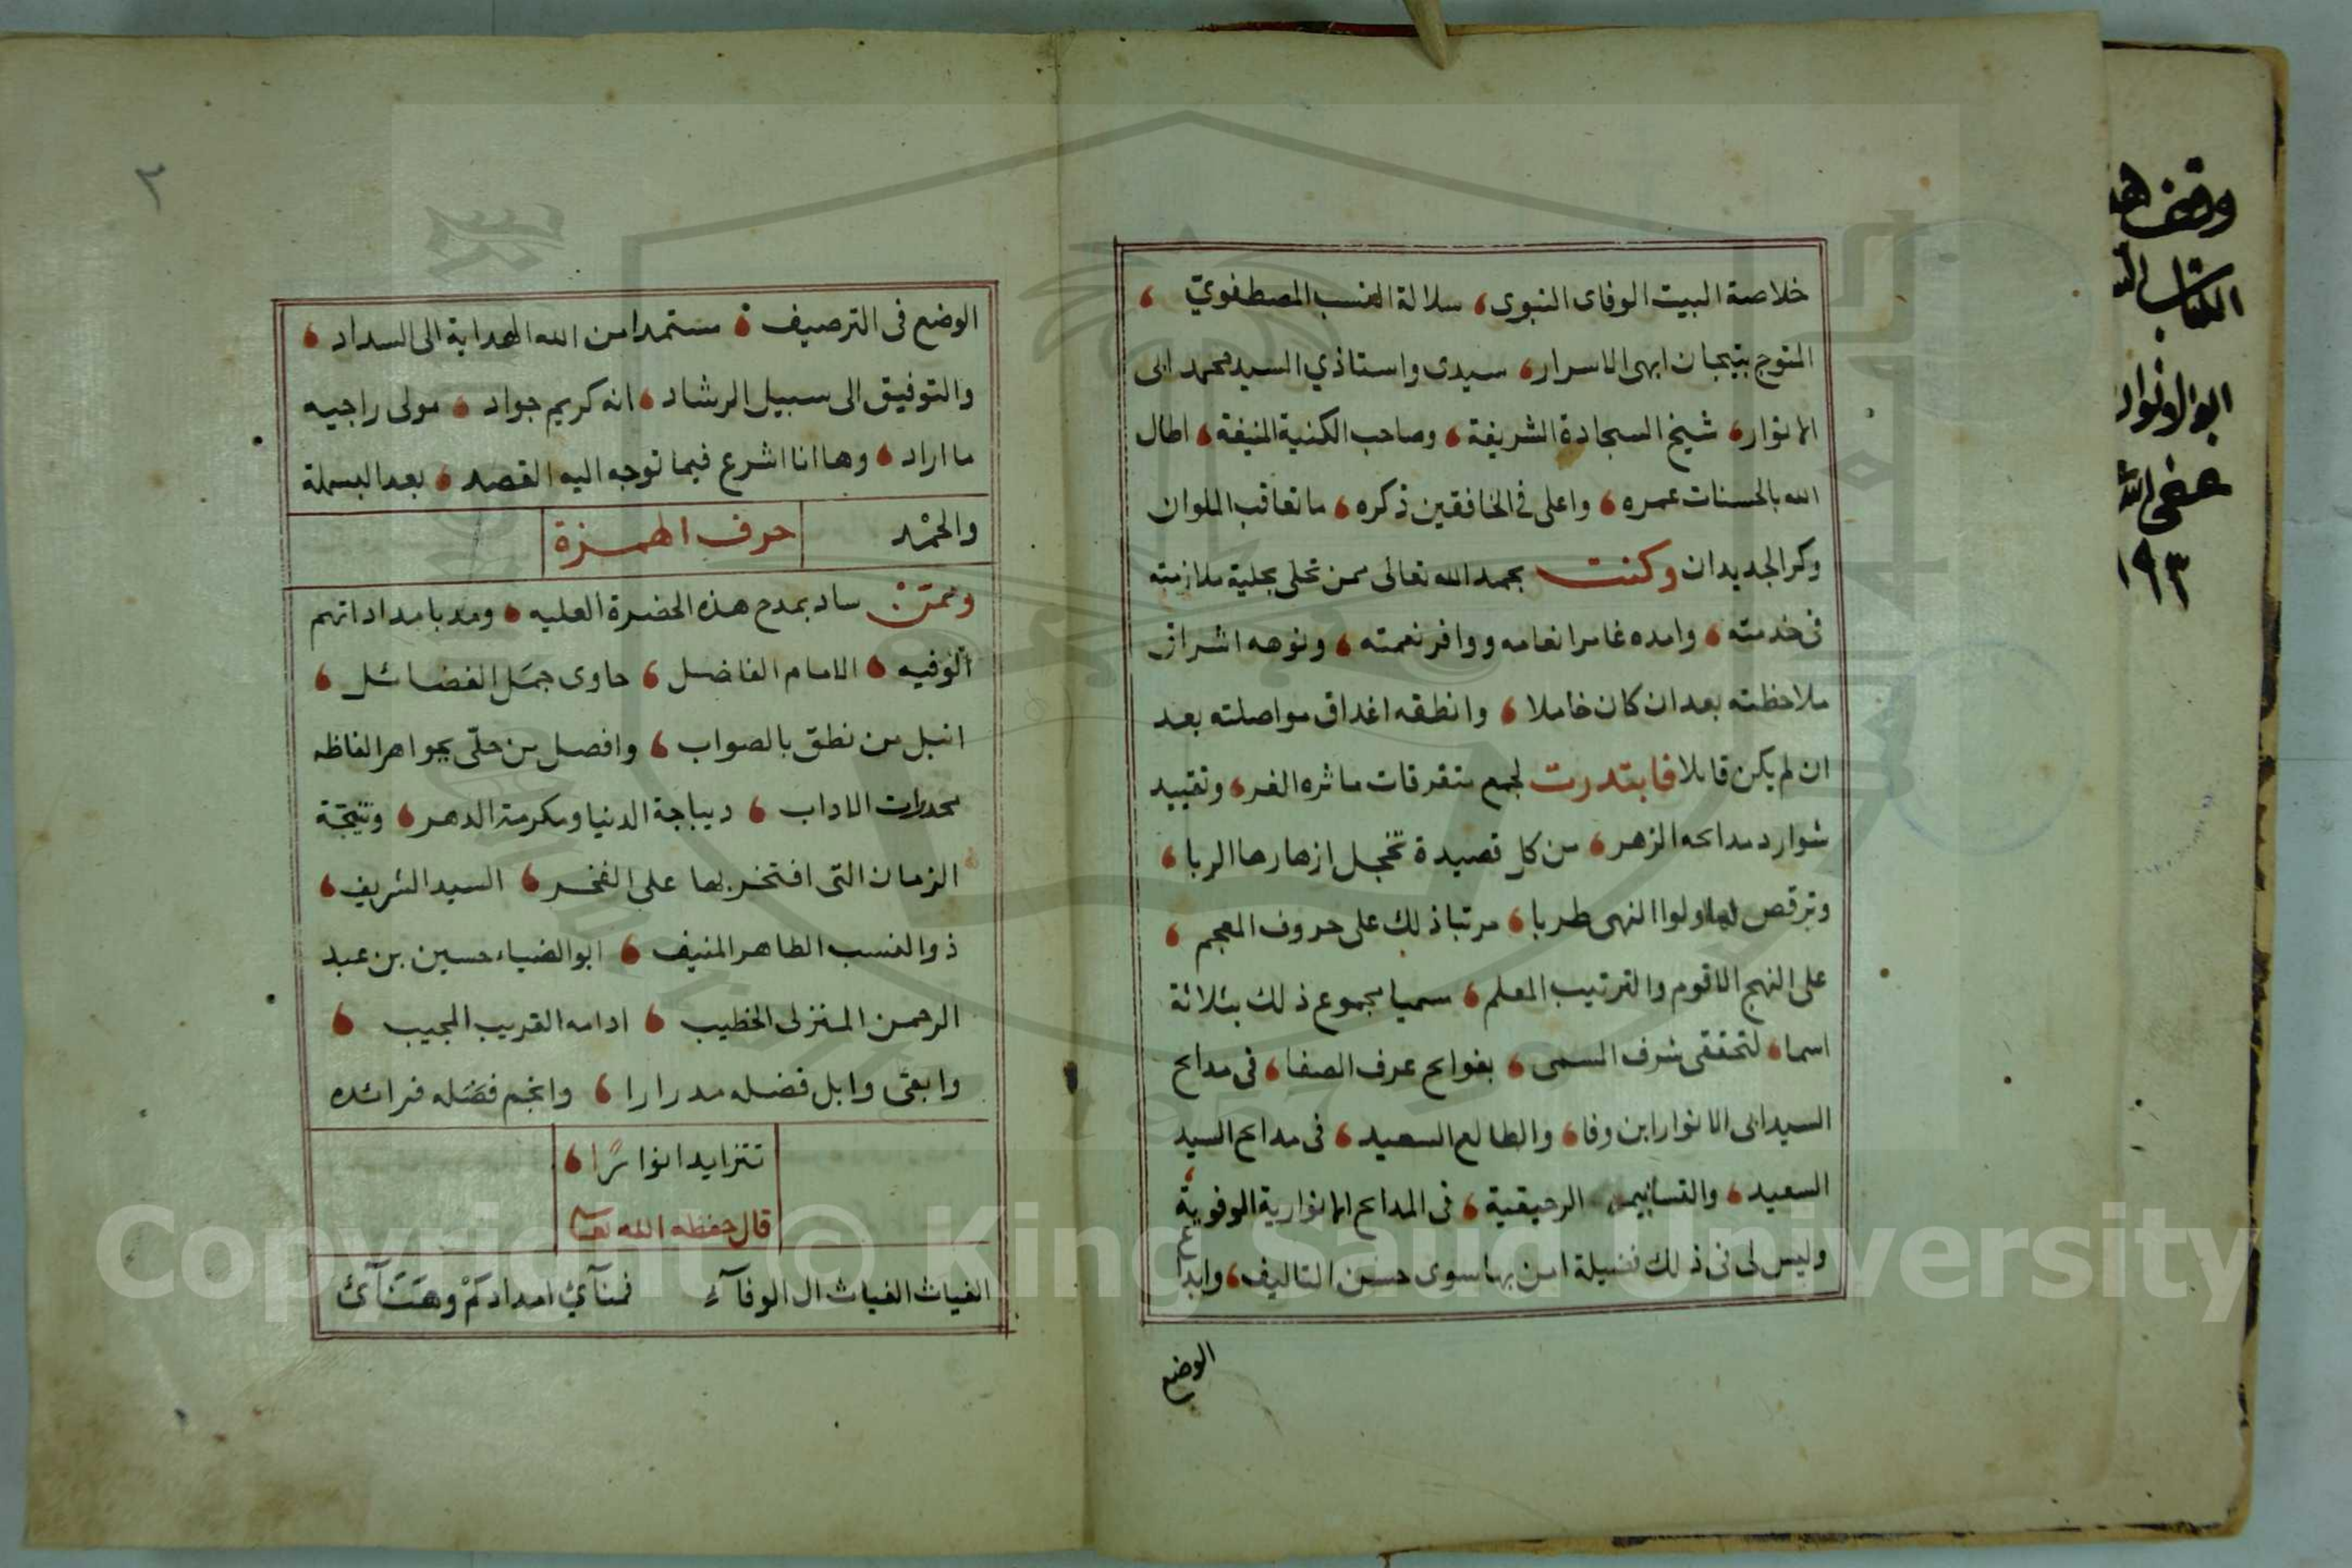 خلاصة البيت الوفاى النبوى، سلالة النسب المصطفوي،
المتوج بتيجان ابهى الاسرار، سيدى واستاذي السيد محمد ابى
الانوار، شيخ السجادة الشريفة، وصاحب الكنية المنيفة، اطال
الله بالحسنات عمره، واعلى فى الخافقين ذكره، ما تعاقب الملوان
وكر الجديدان وكنت بحمد الله تعالى ممن تحلى بحلية ملازمته
فى خدمته، وامده غامر انعامه ووافر نعمته، ونوهه اشراق
ملاحظته بعد ان كان خاملا، وانطقه اغداق مواصلته بعد
ان لم يكن قايلا فابتدرت لجمع متفرقات ماثره الغر، وتقييد
شوارد مدايحه الزهر، من كل قصيدة تخجل ازهارها الربا،
وترقص لها اولوا النهى طربا، مرتبا ذلك على حروف المعجم،
على النهج الاقوم والترتيب المعلم، سميا مجموع ذلك بثلاثة
اسما، لتحقق شرف السمى، بفوايح عرف الصفا، فى مدايح
السيد ابى الانوار ابن وفا، والطالع السعيد، فى مدايح السيد
السعيد، والتسانيم الرحيقية، فى المدايح الانوارية الوفوية،
وليس لى فى ذلك فضيلة امن بها سوى حسن التاليف، وابداع
الوضع
٢
الوضع فى الترصيف، مستمدا من الله الهداية الى السداد،
والتوفيق الى سبيل الرشاد، انه كريم جواد، مولى راجيه
ما اراد، وها انا اشرع فيما توجه اليه القصد، بعد البسملة
والحمْد حرف الهمزة
وممن ساد بمدح هذه الحضرة العليه، ومد بامداداتهم
الوفيه، الامام الفاضل، حاوى جمَل الفضائل،
انبل من نطق بالصواب، وافصل من حلّى بجواهر الفاظه
مخدرات الاداب، ديباجة الدنيا ومكرمة الدهر، ونتيجة
الزمان التى افتخر بها على الفخر، السيد الشريف،
ذو النسب الطاهر المنيف، ابو الضياء حسين بن عبد
الرحمن المنزلى الخطيب، ادامه القريب المجيب،
وابقى وابل فضله مدرارا، وانجم فضله فرائده
تتزايد انوارًا،
قال حفظه الله تعالى
الغياث الغياث ال الوفآء فمنآئ امدادكمْ وهَنَآئ
وقف هذ
الكتاب
ابو الانوار
عفى الله
١٩٣
Copyright © King Saud University